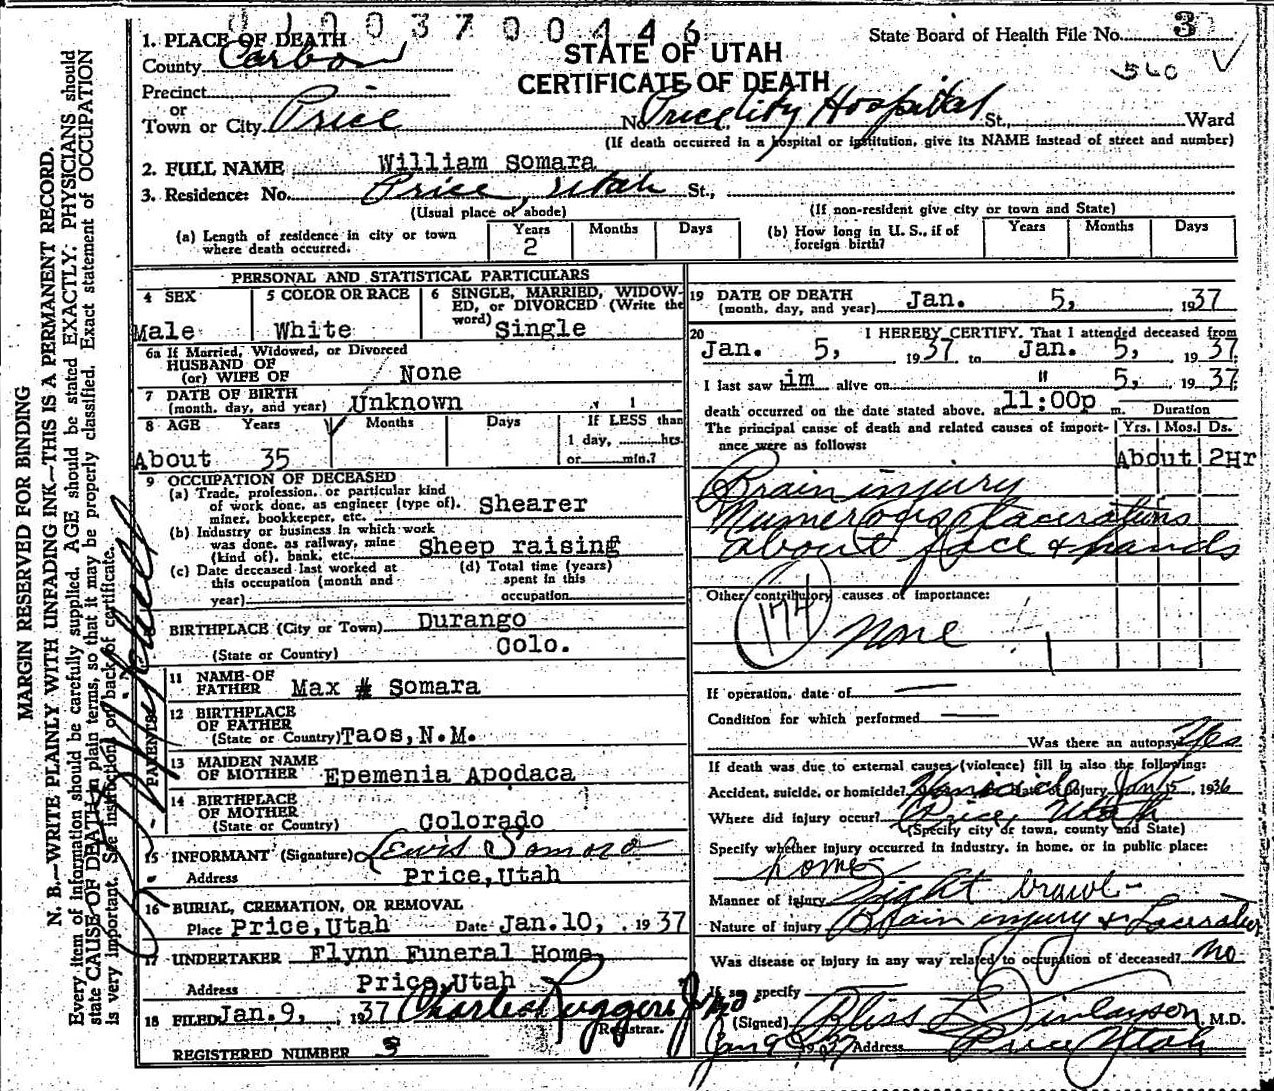 010 0 3 7 0 0 4 4 6
State Board of Health File No. 3
560
STATE OF UTAH
CERTIFICATE OF DEATH
1. PLACE OF DEATH
County Carbon
Precinct
or
Town or City Price No. Price City Hospital St., Ward
(If death occurred in a hospital or institution, give its NAME instead of street and number)
2. FULL NAME William Somara
3. Residence: No. Price, Utah St.,
(Usual place of abode) (If non-resident give city or town and State)
(a) Length of residence in city or town where death occurred. Years 2 Months Days (b) How long in U. S., if of foreign birth? Years Months Days
PERSONAL AND STATISTICAL PARTICULARS
4 SEX Male
5 COLOR OR RACE White
6 SINGLE, MARRIED, WIDOWED, or DIVORCED (Write the word) Single
6a If Married, Widowed, or Divorced
HUSBAND OF
(or) WIFE OF None
7 DATE OF BIRTH
(month, day, and year) Unknown
8 AGE Years Months Days If LESS than
1 day, hrs.
or min.?
About 35
9 OCCUPATION OF DECEASED
(a) Trade, profession, or particular kind
of work done, as engineer (type of), Shearer
miner, bookkeeper, etc.
(b) Industry or business in which work
was done, as railway, mine Sheep raising
(kind of), bank, etc.
(c) Date deceased last worked at
this occupation (month and
year)
(d) Total time (years)
spent in this
occupation
BIRTHPLACE (City or Town) Durango
(State or Country) Colo.
PARENTS
11 NAME OF
FATHER Max Somara
12 BIRTHPLACE
OF FATHER
(State or Country) Taos, N.M.
13 MAIDEN NAME
OF MOTHER Epemenia Apodaca
14 BIRTHPLACE
OF MOTHER
(State or Country) Colorado
15 INFORMANT (Signature) Lewis Somora
Address Price, Utah
16 BURIAL, CREMATION, OR REMOVAL
Place Price, Utah Date Jan. 10, 1937
17 UNDERTAKER Flynn Funeral Home,
Address Price, Utah
18 FILED Jan. 9, 1937 Charles Ruggeri Jr MD
Registrar.
REGISTERED NUMBER 3
19 DATE OF DEATH
(month, day, and year) Jan. 5, 1937
20 I HEREBY CERTIFY, That I attended deceased from
Jan. 5, 1937 to Jan. 5, 1937
I last saw im alive on " 5, 1937
death occurred on the date stated above, at 11:00p m. Duration
The principal cause of death and related causes of importance were as follows: Yrs. Mos. Ds.
About 2Hr
Brain injury
Numerous lacerations
about face & hands
Other contributory causes of importance:
174
None
If operation, date of —
Condition for which performed —
Was there an autopsy Yes
If death was due to external causes (violence) fill in also the following:
Accident, suicide, or homicide? Homicide Date of injury Jan 5, 1936
Where did injury occur? Price, Utah
(Specify city or town, county and State)
Specify whether injury occurred in industry, in home, or in public place:
home
Manner of injury Night brawl -
Nature of injury Brain injury & Laceration
Was disease or injury in any way related to occupation of deceased? no
If so, specify
(Signed) Bliss L Finlayson, M.D.
Jan 9 1937 Address Price Utah
MARGIN RESERVED FOR BINDING
N. B.—WRITE PLAINLY WITH UNFADING INK—THIS IS A PERMANENT RECORD.
Every item of information should be carefully supplied. AGE should be stated EXACTLY. PHYSICIANS should
state CAUSE OF DEATH in plain terms, so that it may be properly classified. Exact statement of OCCUPATION
is very important. See instructions on back of certificate.